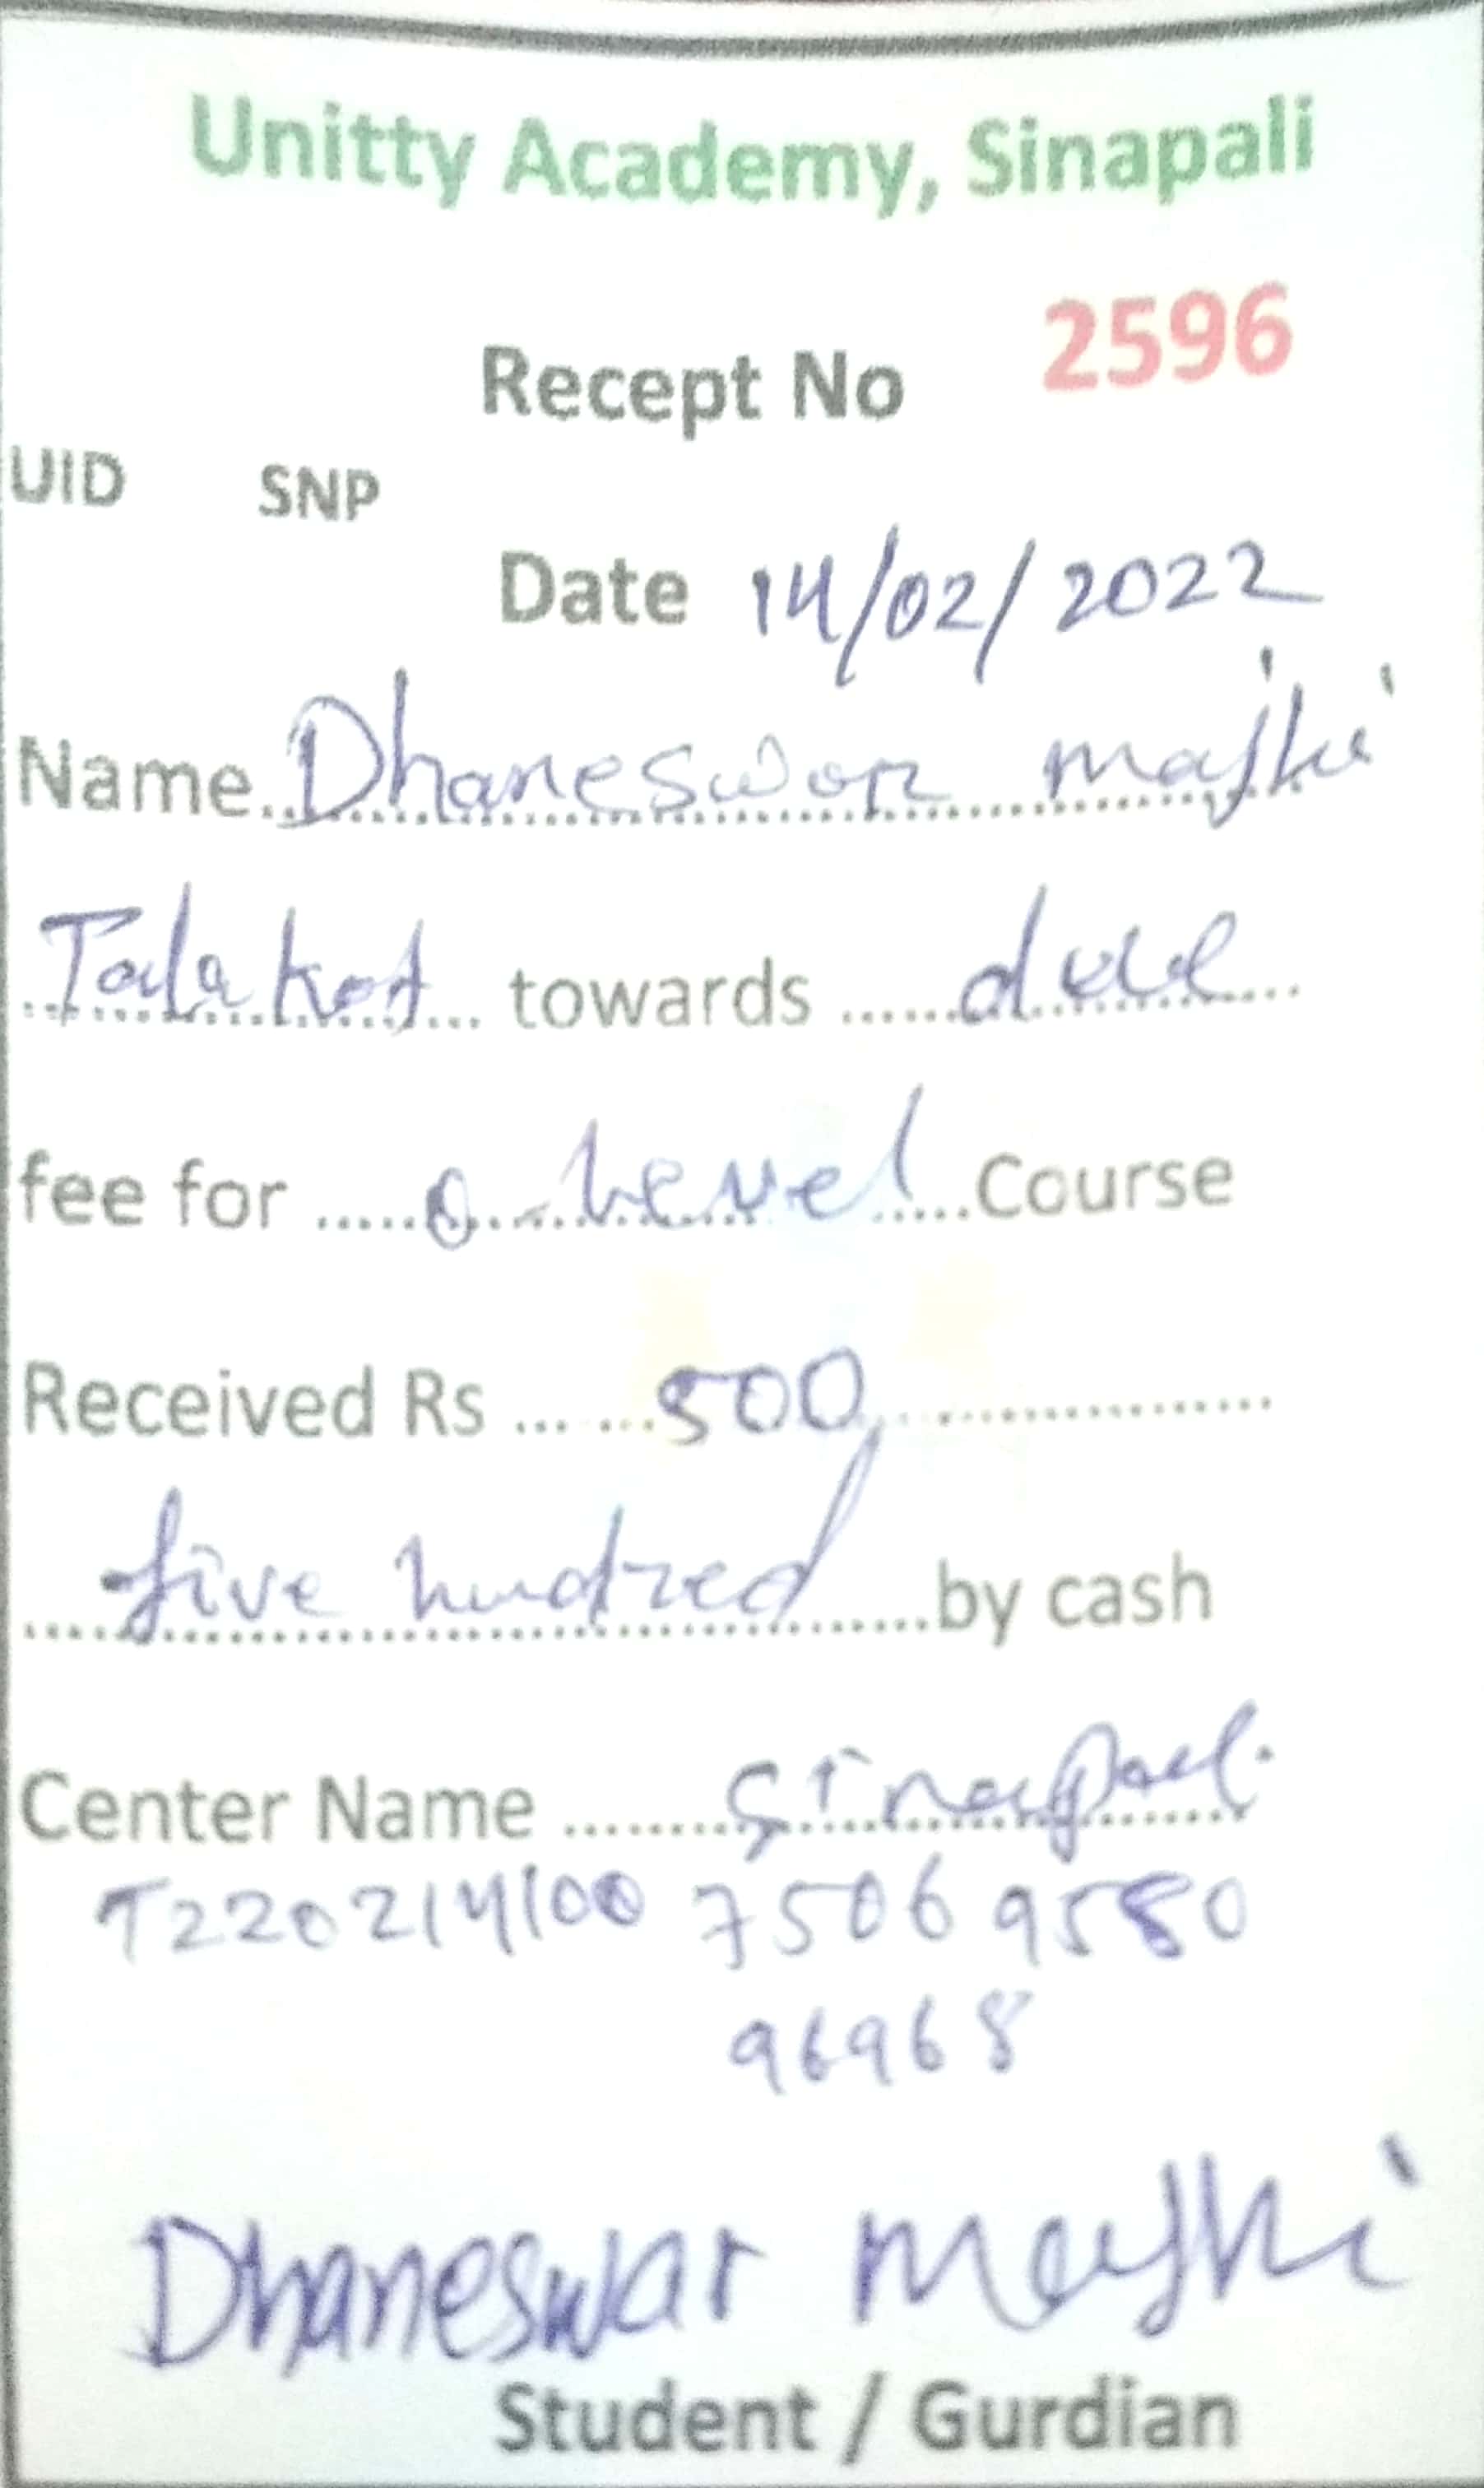 Unitty Academy, Sinapali
Recept No 2596
UID SNP
Date 14/02/2022
Name..Dhaneswor majhi
Talakot... towards ......due...
fee for .....o-Level.....Course
Received Rs ... ...500,................
....five hundred.......by cash
Center Name .........Sinapali
T2202141100 7506 9580
96968
Dhaneswar Majhi
Student / Gurdian